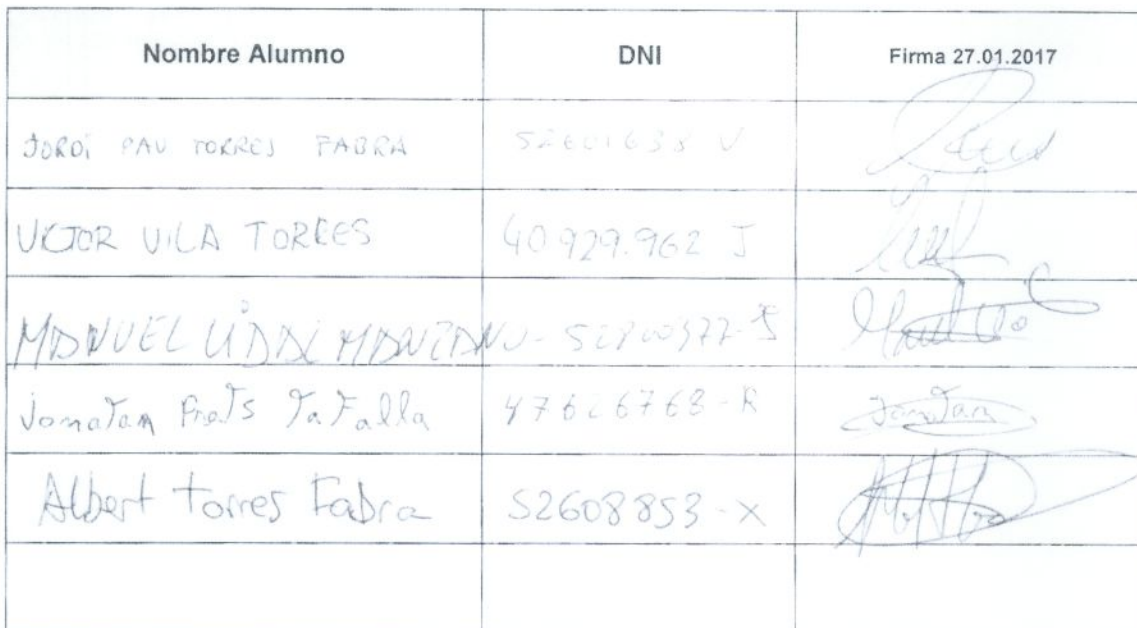 Nombre Alumno DNI Firma 27.01.2017
JORDi PAU TORRES FABRA 52601638 V
VICTOR VILA TORRES 40.929.962 J
MANUEL
Jonatan Prats Tafalla 47626768-R Jonatan
Albert Torres Fabra 52608853-X